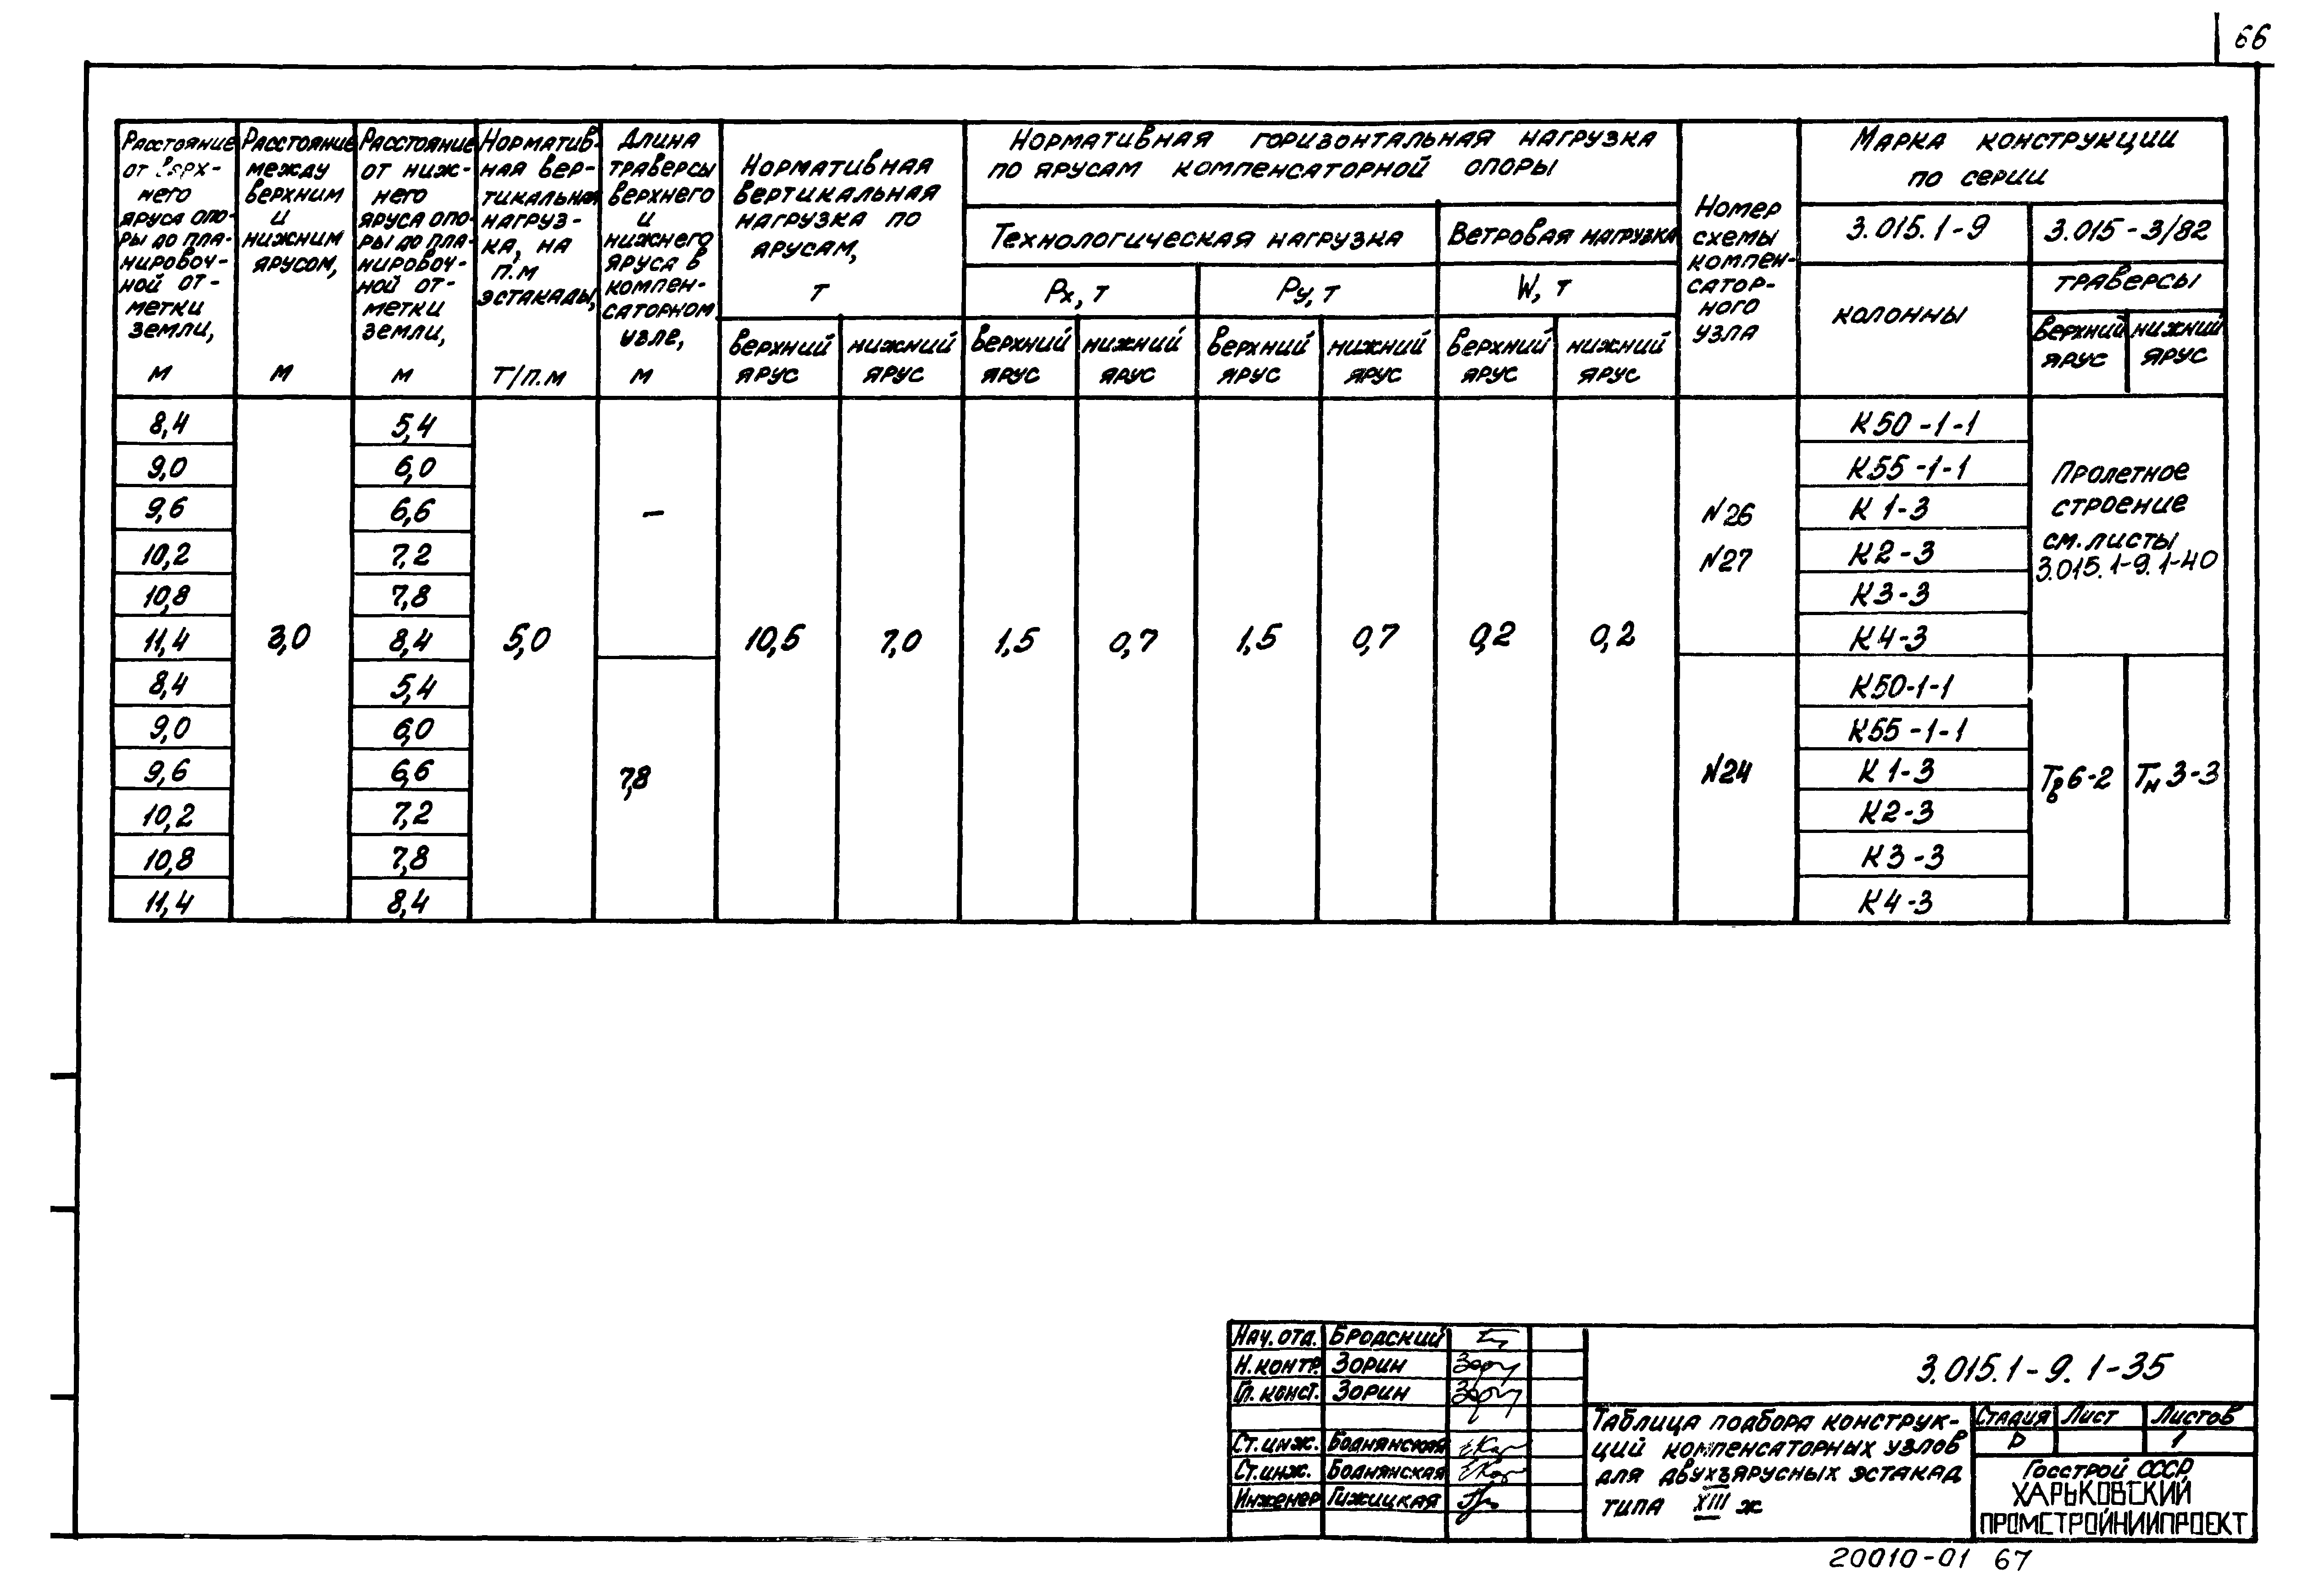 66
Расстояние
от верх-
него
яруса опо-
ры до пла-
нировоч-
ной от-
метки
земли,
м
Расстояние
между
верхним
и
нижним
ярусом,
м
Расстояние
от ниж-
него
яруса опо-
ры до пла-
нировоч-
ной от-
метки
земли,
м
Норматив-
ная вер-
тикальная
нагруз-
ка, на
п.м
эстакады,
т/п.м
Длина
траверсы
верхнего
и
нижнего
яруса в
компен-
саторном
узле,
м
Нормативная
вертикальная
нагрузка по
ярусам,
т
верхний
ярус
нижний
ярус
Нормативная горизонтальная нагрузка
по ярусам компенсаторной опоры
Технологическая нагрузка
Ветровая нагрузка
Px, т
Py, т
W, т
верхний
ярус
нижний
ярус
верхний
ярус
нижний
ярус
верхний
ярус
нижний
ярус
Номер
схемы
компен-
сатор-
ного
узла
Марка конструкции
по серии
3.015.1-9
3.015-3/82
колонны
траверсы
верхний
ярус
нижний
ярус
8,4 5,4 К50-1-1
9,0 6,0 К55-1-1
9,6 6,6 К1-3
10,2 7,2 К2-3
10,8 7,8 К3-3
11,4 3,0 8,4 5,0 10,5 7,0 1,5 0,7 1,5 0,7 0,2 0,2 К4-3
–
№26
№27
Пролетное
строение
см. листы
3.015.1-9.1-40
8,4 5,4 К50-1-1
9,0 6,0 К55-1-1
9,6 6,6 7,8 №24 К1-3 Тв6-2 Тн3-3
10,2 7,2 К2-3
10,8 7,8 К3-3
11,4 8,4 К4-3
Нач. отд. Бродский
Н. контр. Зорин
Гл. конст. Зорин
Ст. инж. Боднянская
Ст. инж. Боднянская
Инженер Гижицкая
3.015.1-9.1-35
Таблица подбора конструк-
ций компенсаторных узлов
для двухъярусных эстакад
типа XIII ж
Стадия Лист Листов
Р 1
Госстрой СССР
ХАРЬКОВСКИЙ
ПРОМСТРОЙНИИПРОЕКТ
20010-01 67